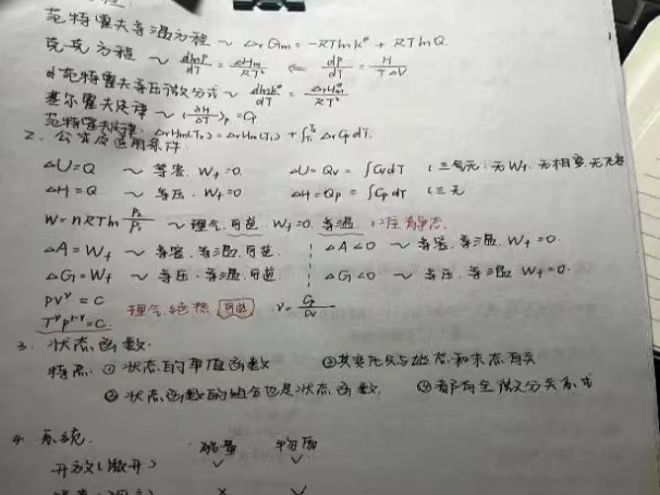 范特霍夫等温方程 ~ ΔrGm = -RTlnKθ + RTlnQ
克-克方程 ~ dlnp/dT = ΔHm/RT² ⇐ dp/dT = H/TΔV
范特霍夫等压微分式 ~ dlnKθ/dT = ΔrHmθ/RT²
基尔霍夫定律 ~ (∂H/∂T)p = Cp
ΔrHm(T₂) = ΔrHm(T₁) + ∫ ΔrCp dT.
2. 公式及适用条件
ΔU=Q ~ 等容. Wf=0. ΔU=Qv=∫CvdT (三无: 无Wf. 无相变. 无
ΔH=Q ~ 等压. Wf=0 ΔH=Qp=∫CpdT (三无
W=nRTln P₂/P₁ ~ 理气. 可逆. Wf=0. 等温. 静态.
ΔA=Wf ~ 等容. 等温. 可逆. ΔA<0 ~ 等容. 等温. Wf=0.
ΔG=Wf ~ 等压. 等温. 可逆 ΔG<0 ~ 等压. 等温. Wf=0.
PVᵞ=C 理气. 绝热 可逆 γ=Cp/Cv
TᵞP¹⁻ᵞ=C.
3. 状态函数.
特点: ① 状态的单值函数 ②其变化只与始态和末态有关
③ 状态函数的组合也是状态函数. ④都有全微分关系式
4. 系统. 能量 物质
开放(敞开) ✓ ✓